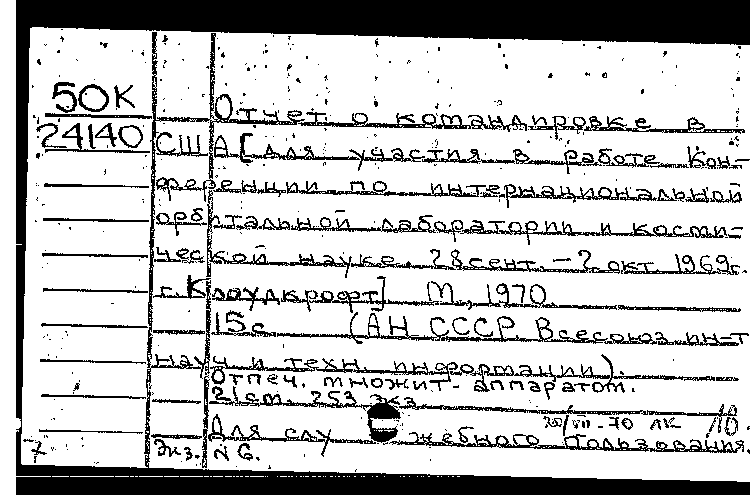 50К
24140
Отчет о командировке в
США [для участия в работе Кон-
ференции по интернациональной
орбитальной лаборатории и косми-
ческой науке. 28 сент. – 2 окт 1969г.
г. Клоудкрофт] М., 1970.
15с (АН СССР. Всесоюз ин-т
науч и техн информации).
Отпеч. множит- аппаратом.
21см. 253 экз
20/VII-70 ЛК
Для служебного пользования.
7 Экз. N 6.